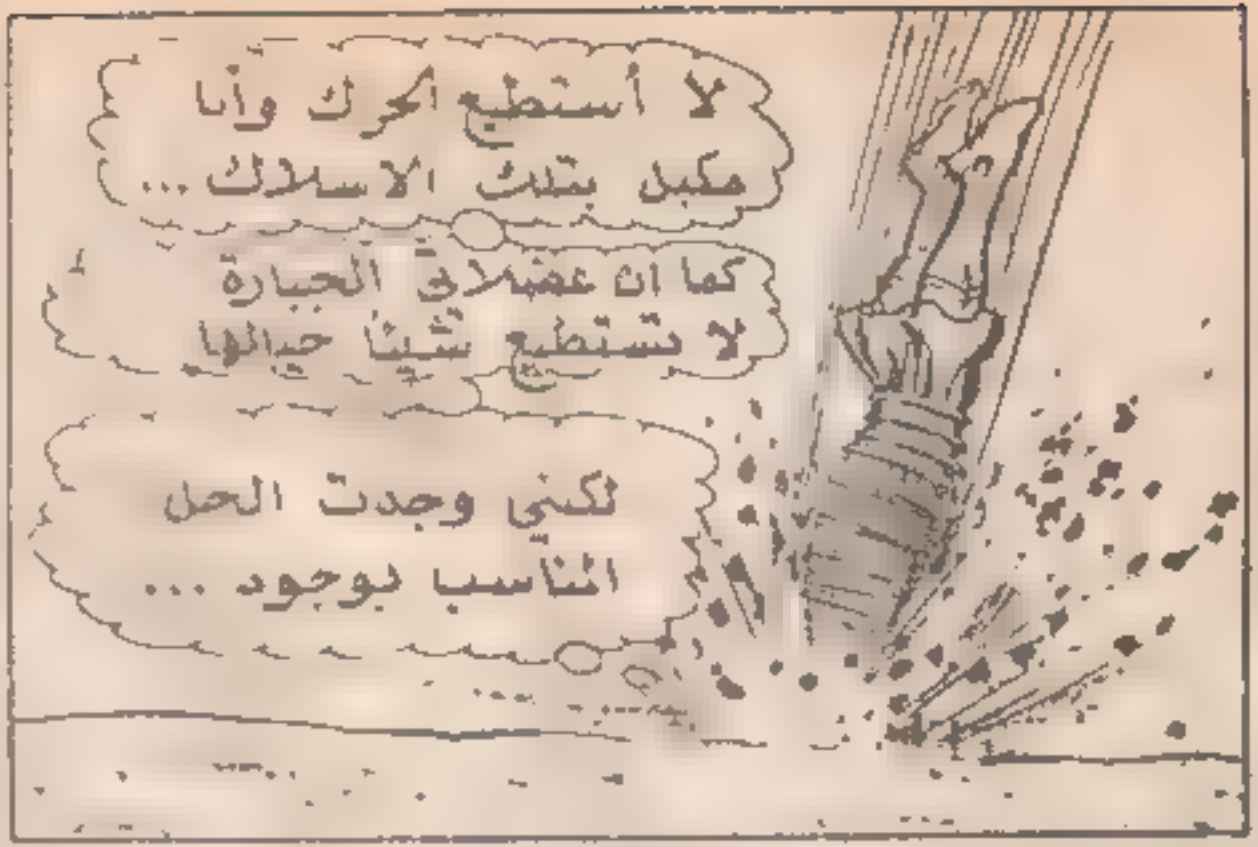 لا أستطيع الحرك وأنا
مكبل بتلك الاسلاك...
كما ان عضلاتي الجبارة
لا تستطيع شيئا حيالها
لكنني وجدت الحل
المناسب لوجود ...